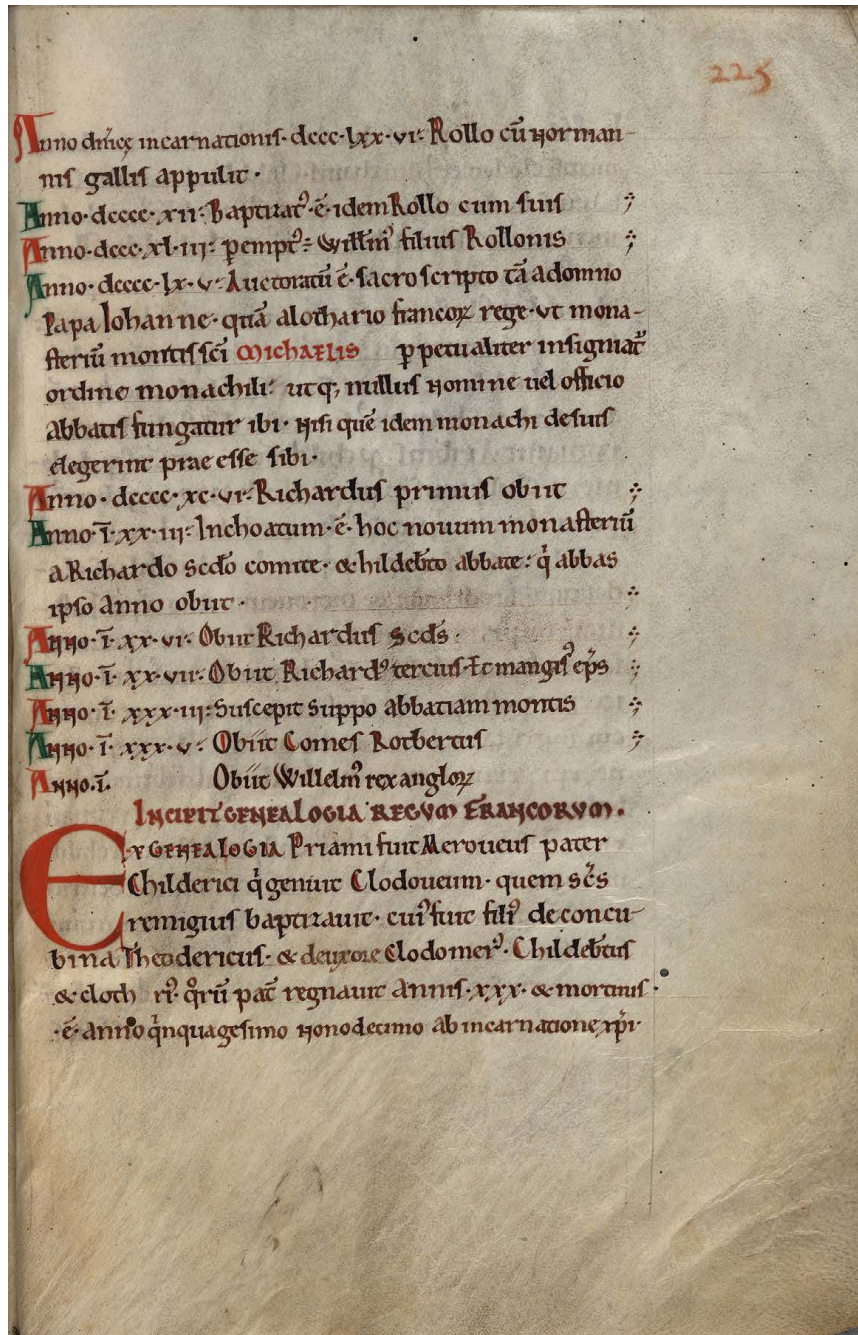 225
Anno dñicę incarnationis· dccc·lxx·vi· Rollo cũ norman-
nis gallis appulit·
Anno·dcccc·xii· Baptizat᾽ ·ẽ· idem Rollo cum suis
Anno·dccc·xl·iii· pempt᾽ ÷ Willelm᾽ filius Rollonis
Anno·dcccc·lx·v· Auctoratũ ẽ· sacro scripto tã a domno
Papa Iohanne· quã a lothario francoꝝ rege· ut mona-
steriũ montis sc̃i Michaelis ꝑpetualiter insigniat᷑
ordine monachili· utq; nullus nomine uel officio
abbatis fungatur ibi· nisi quẽ idem monachi de suis
elegerint prae esse sibi·
Anno·dcccc·xc·vi· Richardus primus obiit
Anno·ī·xx·iii· Inchoatum·ẽ· hoc novum monasteriũ
a Richardo sc̃do comite· & hildeb̃to abbate· q̇ abbas
ipso anno obiit·
Anno·ī·xx·vi· Obiit Richardus sc̃ds·
Anno·ī·xx·vii· Obiit Richard᾽ tercius· Et mangis᾽ ep̃s
Anno·ī·xxx·iii· Suscepit Suppo abbatiam montis
Anno·ī·xxx·v· Obiit Comes Rotbertus
Anno·ī· Obiit Willelm᾽ rex angloꝝ
INCIPIT GENEALOGIA REGUM FRANCORUM·
Ex GENEALOGIA Priami fuit Meroveus pater
Childerici q̇ genuit Clodoveum· quem sc̃s
remigius baptizavit· cui᾽ fuit fili᾽ de concu-
bina Theodericus· & de uxore Clodomer᾽· Childeb̃tus
& cloth ri᾽· q̊rũ pat̃ regnavit annis·xxx· & mortuus·
·ẽ· anno q̇nquagesimo nonodecimo ab incarnatione xp̃i·